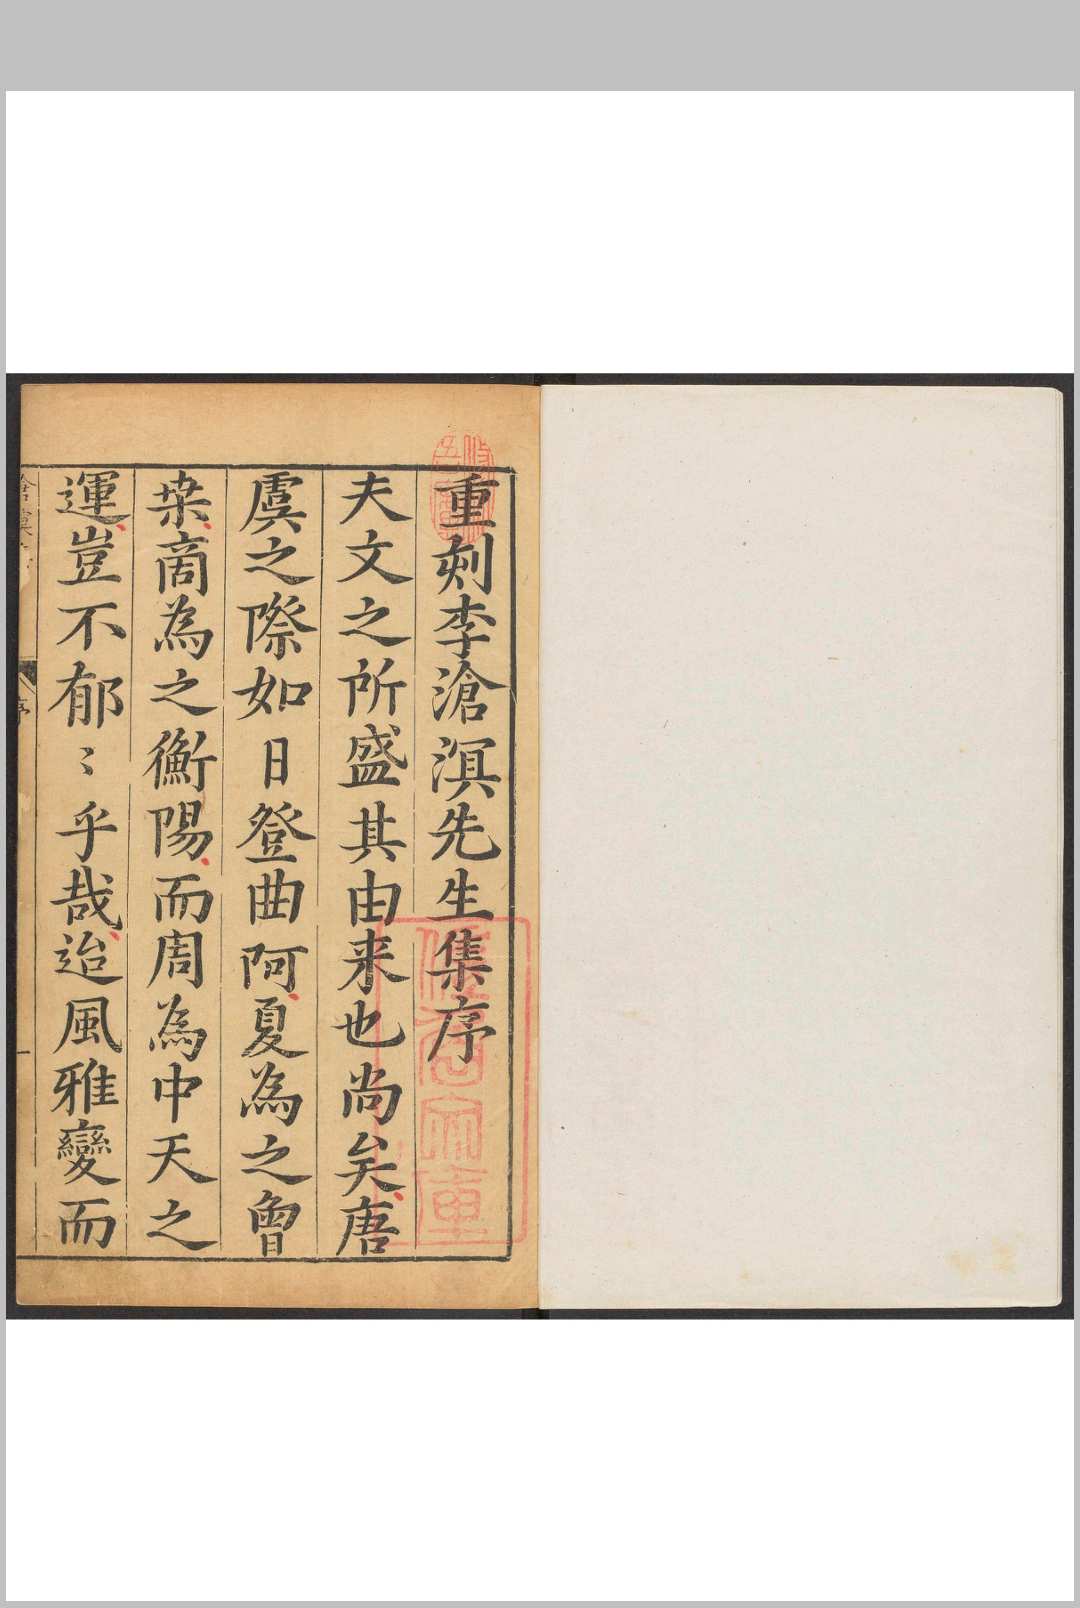 重刻李滄溟先生集序
夫文之所盛其由来也尚矣唐
虞之際如日登曲阿夏為之曾
桒商為之衡陽而周為中天之
運豈不郁〻乎哉迨風雅變而
序
一